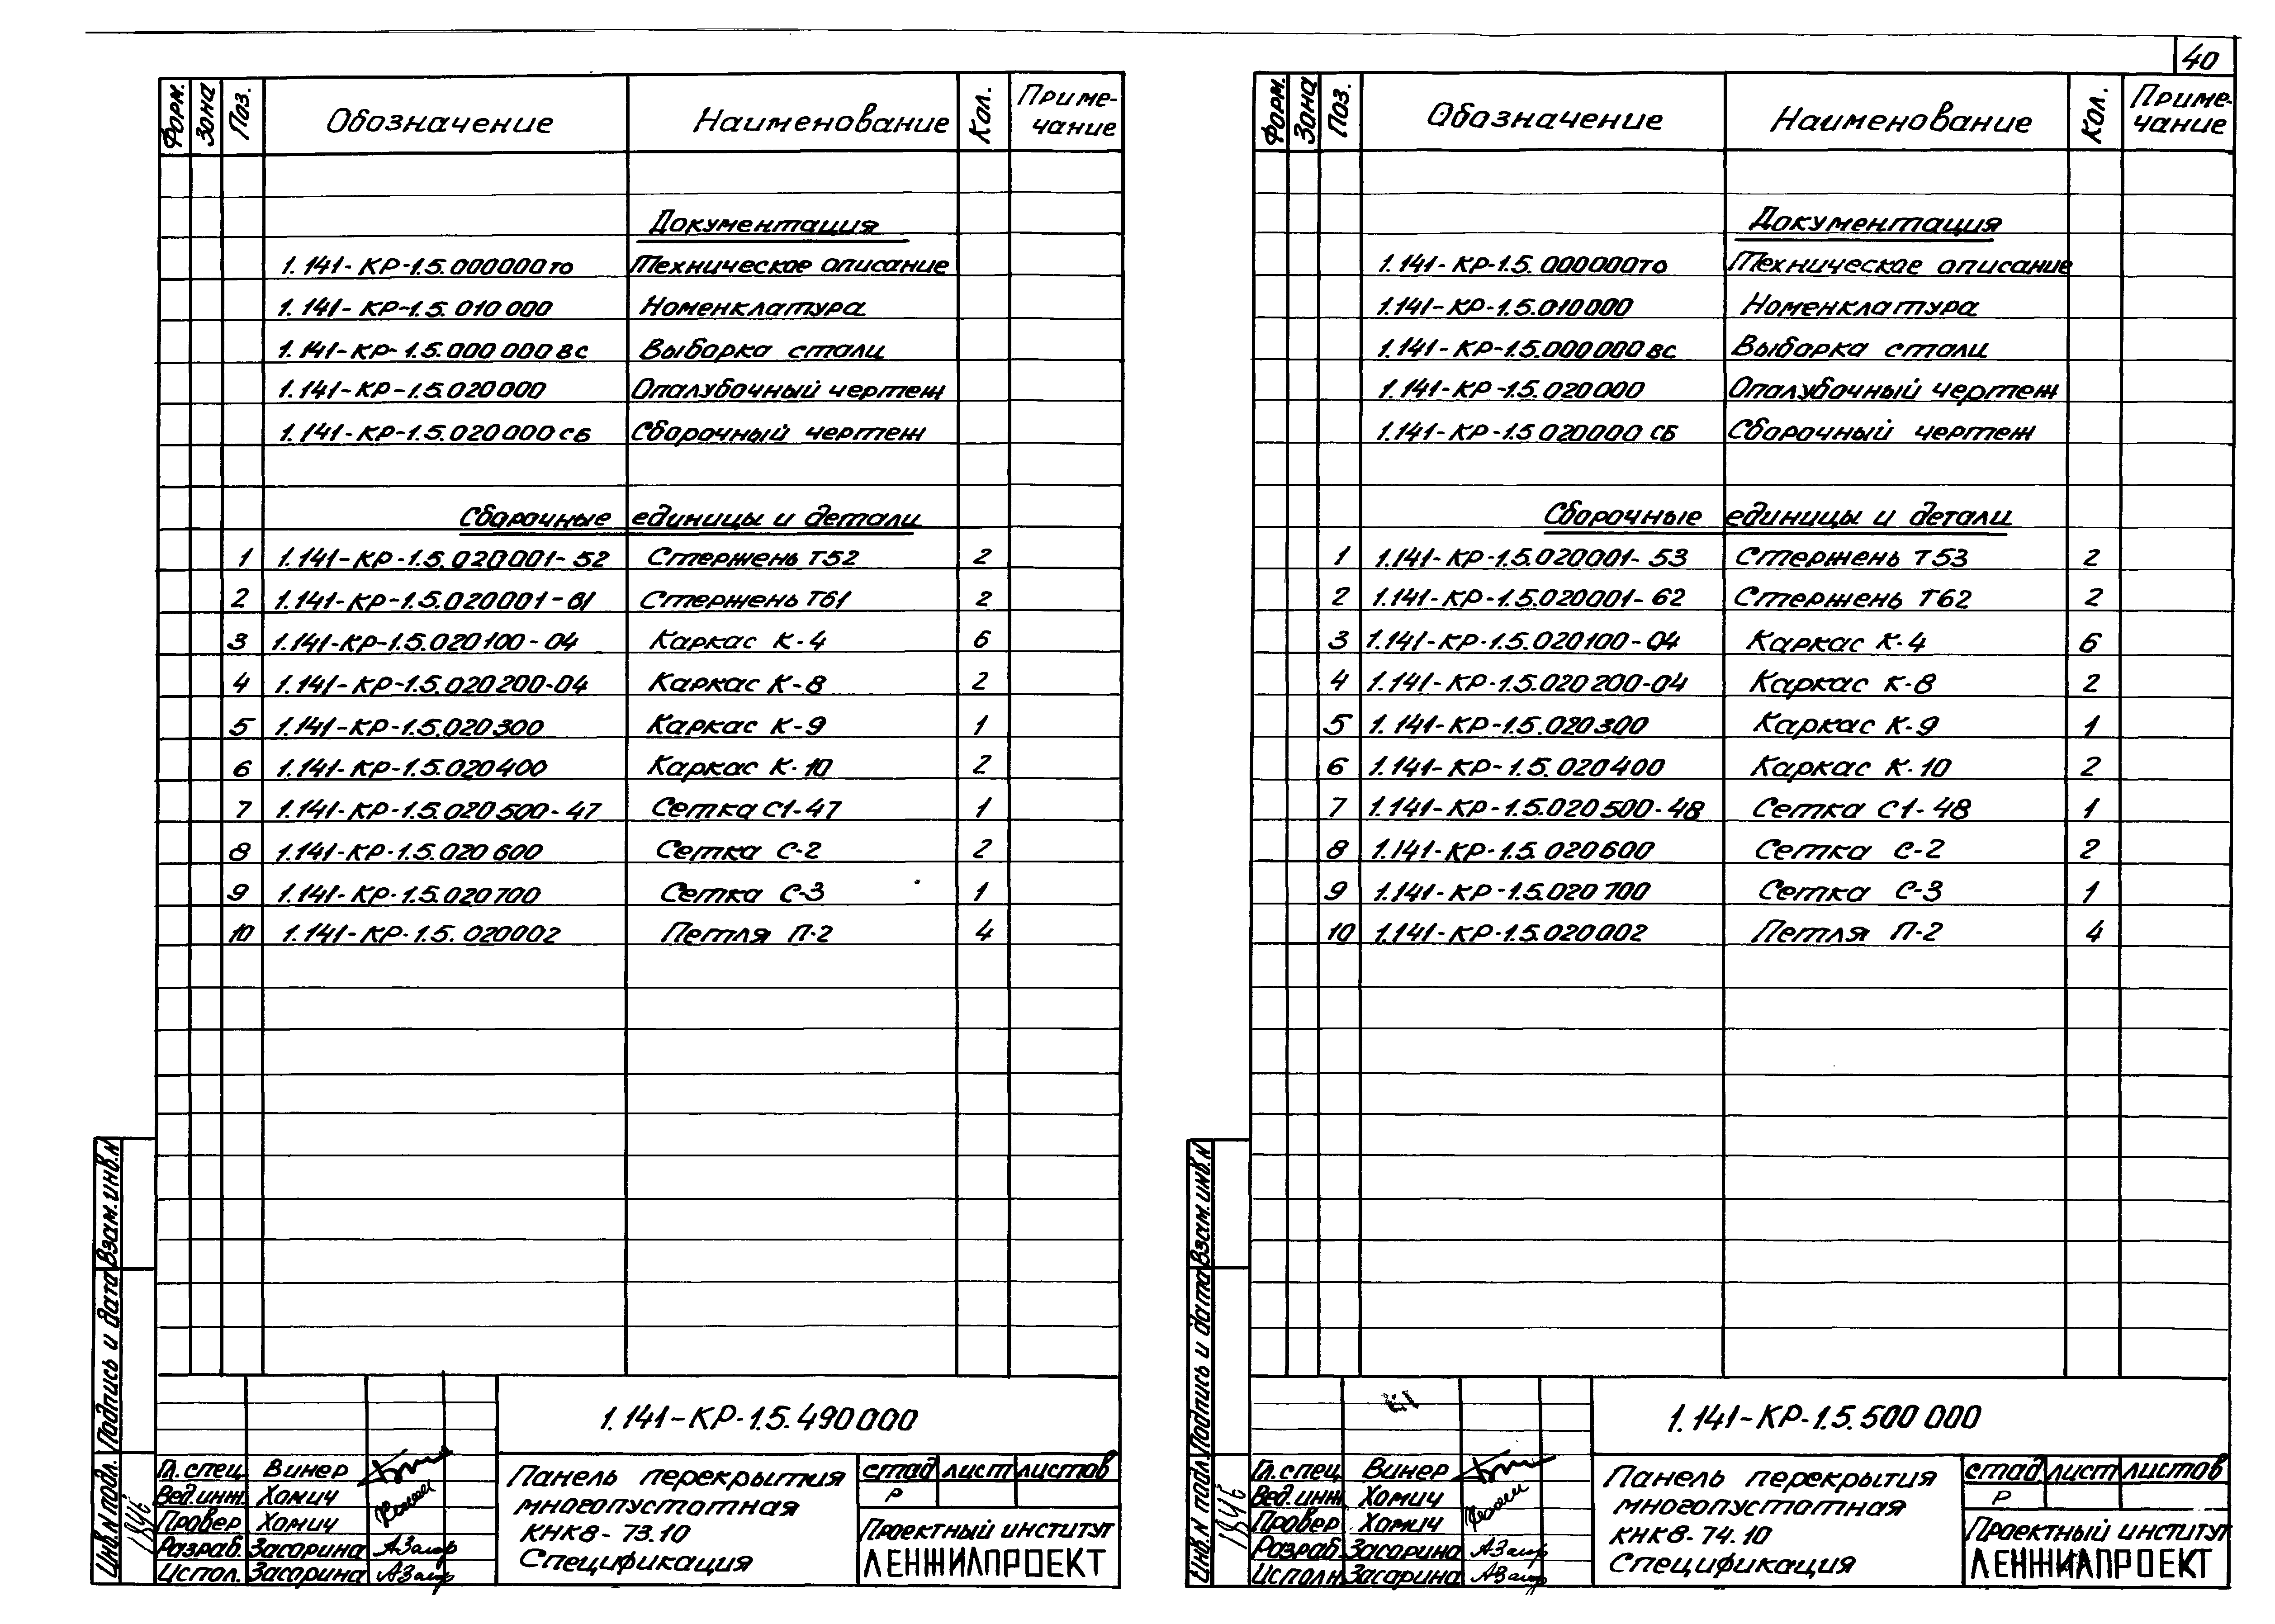 40
Форм. Зона Поз. Обозначение Наименование Кол. Приме-
чание
Документация
1.141-КР-1.5.000000то Техническое описание
1.141-КР-1.5.010000 Номенклатура
1.141-КР-1.5.000000вс Выборка стали
1.141-КР-1.5.020000 Опалубочный чертеж
1.141-КР-1.5.020000сб Сборочный чертеж
Сборочные единицы и детали
1 1.141-КР-1.5.020001-52 Стержень Т52 2
2 1.141-КР-1.5.020001-61 Стержень Т61 2
3 1.141-КР-1.5.020100-04 Каркас К-4 6
4 1.141-КР-1.5.020200-04 Каркас К-8 2
5 1.141-КР-1.5.020300 Каркас К-9 1
6 1.141-КР-1.5.020400 Каркас К-10 2
7 1.141-КР-1.5.020500-47 Сетка С1-47 1
8 1.141-КР-1.5.020600 Сетка С-2 2
9 1.141-КР-1.5.020700 Сетка С-3 1
10 1.141-КР-1.5.020002 Петля П-2 4
Взам.инв.N
Подпись и дата
Инв.N подл.
1.141-КР-1.5.490000
Гл.спец Винер
Вед.инж. Хомич
Провер Хомич
Разраб. Засорина
Испол. Засорина
Панель перекрытия
многопустотная
КНК8-73.10
Спецификация
стад лист листов
Р
Проектный институт
ЛЕНЖИЛПРОЕКТ
Форм. Зона Поз. Обозначение Наименование Кол. Приме-
чание
Документация
1.141-КР-1.5.000000то Техническое описание
1.141-КР-1.5.010000 Номенклатура
1.141-КР-1.5.000000вс Выборка стали
1.141-КР-1.5.020000 Опалубочный чертеж
1.141-КР-1.5 020000 СБ Сборочный чертеж
Сборочные единицы и детали
1 1.141-КР-1.5.020001-53 Стержень Т53 2
2 1.141-КР-1.5.020001-62 Стержень Т62 2
3 1.141-КР-1.5.020100-04 Каркас К-4 6
4 1.141-КР-1.5.020200-04 Каркас К-8 2
5 1.141-КР-1.5.020300 Каркас К-9 1
6 1.141-КР-1.5.020400 Каркас К-10 2
7 1.141-КР-1.5.020500-48 Сетка С1-48 1
8 1.141-КР-1.5.020600 Сетка С-2 2
9 1.141-КР-1.5.020700 Сетка С-3 1
10 1.141-КР-1.5.020002 Петля П-2 4
Взам.инв.N
Подпись и дата
Инв.N подл.
1.141-КР-1.5.500000
Гл.спец Винер
Вед.инж Хомич
Провер. Хомич
Разраб. Засорина
Исполн. Засорина
Панель перекрытия
многопустотная
КНК8-74.10
Спецификация
стад лист листов
Р
Проектный институт
ЛЕНЖИЛПРОЕКТ